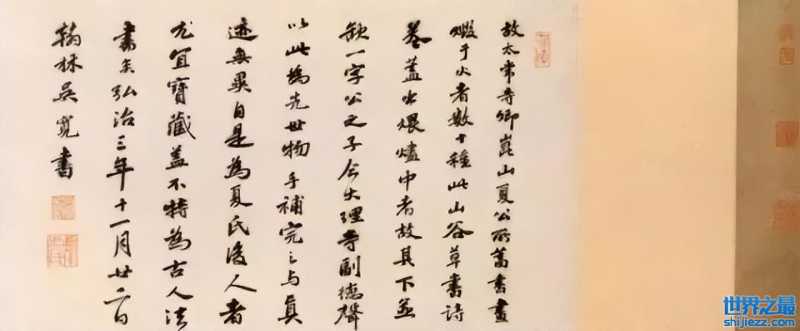 故太常寺卿崑山夏公所蓄書畫
燬于火者數十種此山谷草書詩
卷蓋出煨燼中者故其下並
缺一字公之子今大理寺副德聲
以此為先世物手補完之与真
迹無異自是為夏氏後人者
尤宜寶藏盖不特為古人法
書矣弘治三年十一月廿二日
翰林吳寬書
世界之最
shijiezz.com